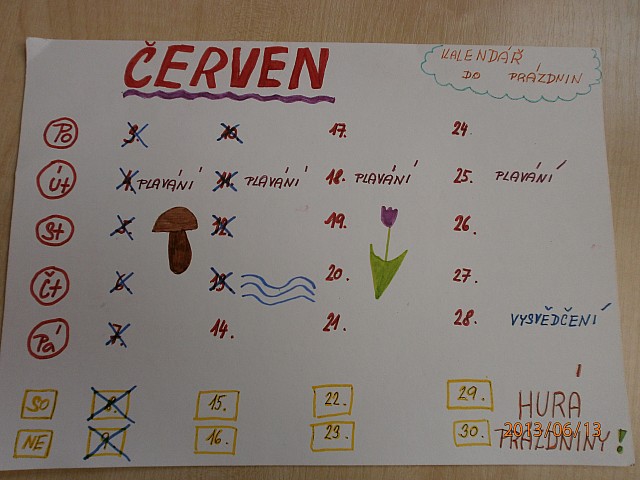 ČERVEN
KALENDÁŘ
DO PRÁZDNIN
Po 3. 10. 17. 24.
Út 4. PLAVÁNÍ 11. PLAVÁNÍ 18. PLAVÁNÍ 25. PLAVÁNÍ
St 5. 12. 19. 26.
Čt 6. 13. 20. 27.
Pá 7. 14. 21. 28. VYSVĚDČENÍ
SO 8. 15. 22. 29. HURÁ
NE 9. 16. 23. 30. PRÁZDNINY!
2013/06/13